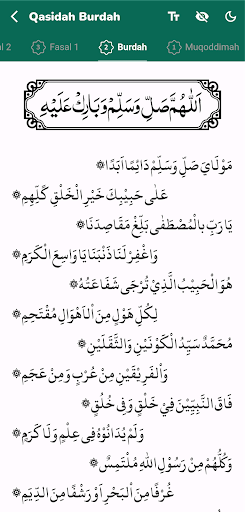 Qasidah Burdah
al 2
3 Fasal 1
2 Burdah
1 Muqoddimah
اَللّٰهُمَّ صَلِّ وَسَلِّمْ وَبَارِكْ عَلَيْهِ
مَوْلَايَ صَلِّ وَسَلِّمْ دَائِمًا اَبَدًا ۞
عَلَى حَبِيْبِكَ خَيْرِ الْخَلْقِ كُلِّهِمِ
يَا رَبِّ بِالْمُصْطَفٰى بَلِّغْ مَقَاصِدَنَا ۞
وَاغْفِرْ لَنَا ذَنْبَنَا يَا وَاسِعَ الْكَرَمِ ۞
هُوَ الْحَبِيْبُ الَّذِيْ تُرْجَى شَفَاعَتُهُ ۞
لِكُلِّ هَوْلٍ مِنَ اْلاَهْوَالِ مُقْتَحِمِ ۞
مُحَمَّدٌ سَيِّدُ الْكَوْنَيْنِ وَالثَّقَلَيْنِ ۞
وَالْفَرِيْقَيْنِ مِنْ عُرْبٍ وَمِنْ عَجَمِ ۞
فَاقَ النَّبِيِّيْنَ فِيْ خَلْقٍ وَفِى خُلُقٍ ۞
وَلَمْ يُدَانُوْهُ فِى عِلْمٍ وَلَا كَرَمِ ۞
وَكُلُّهُمْ مِنْ رَسُوْلِ اللهِ مُلْتَمِسٌ ۞
غُرْفًا مِنَ الْبَحْرِ اَوْ رَشْفًا مِنَ الدِّيَمِ ۞